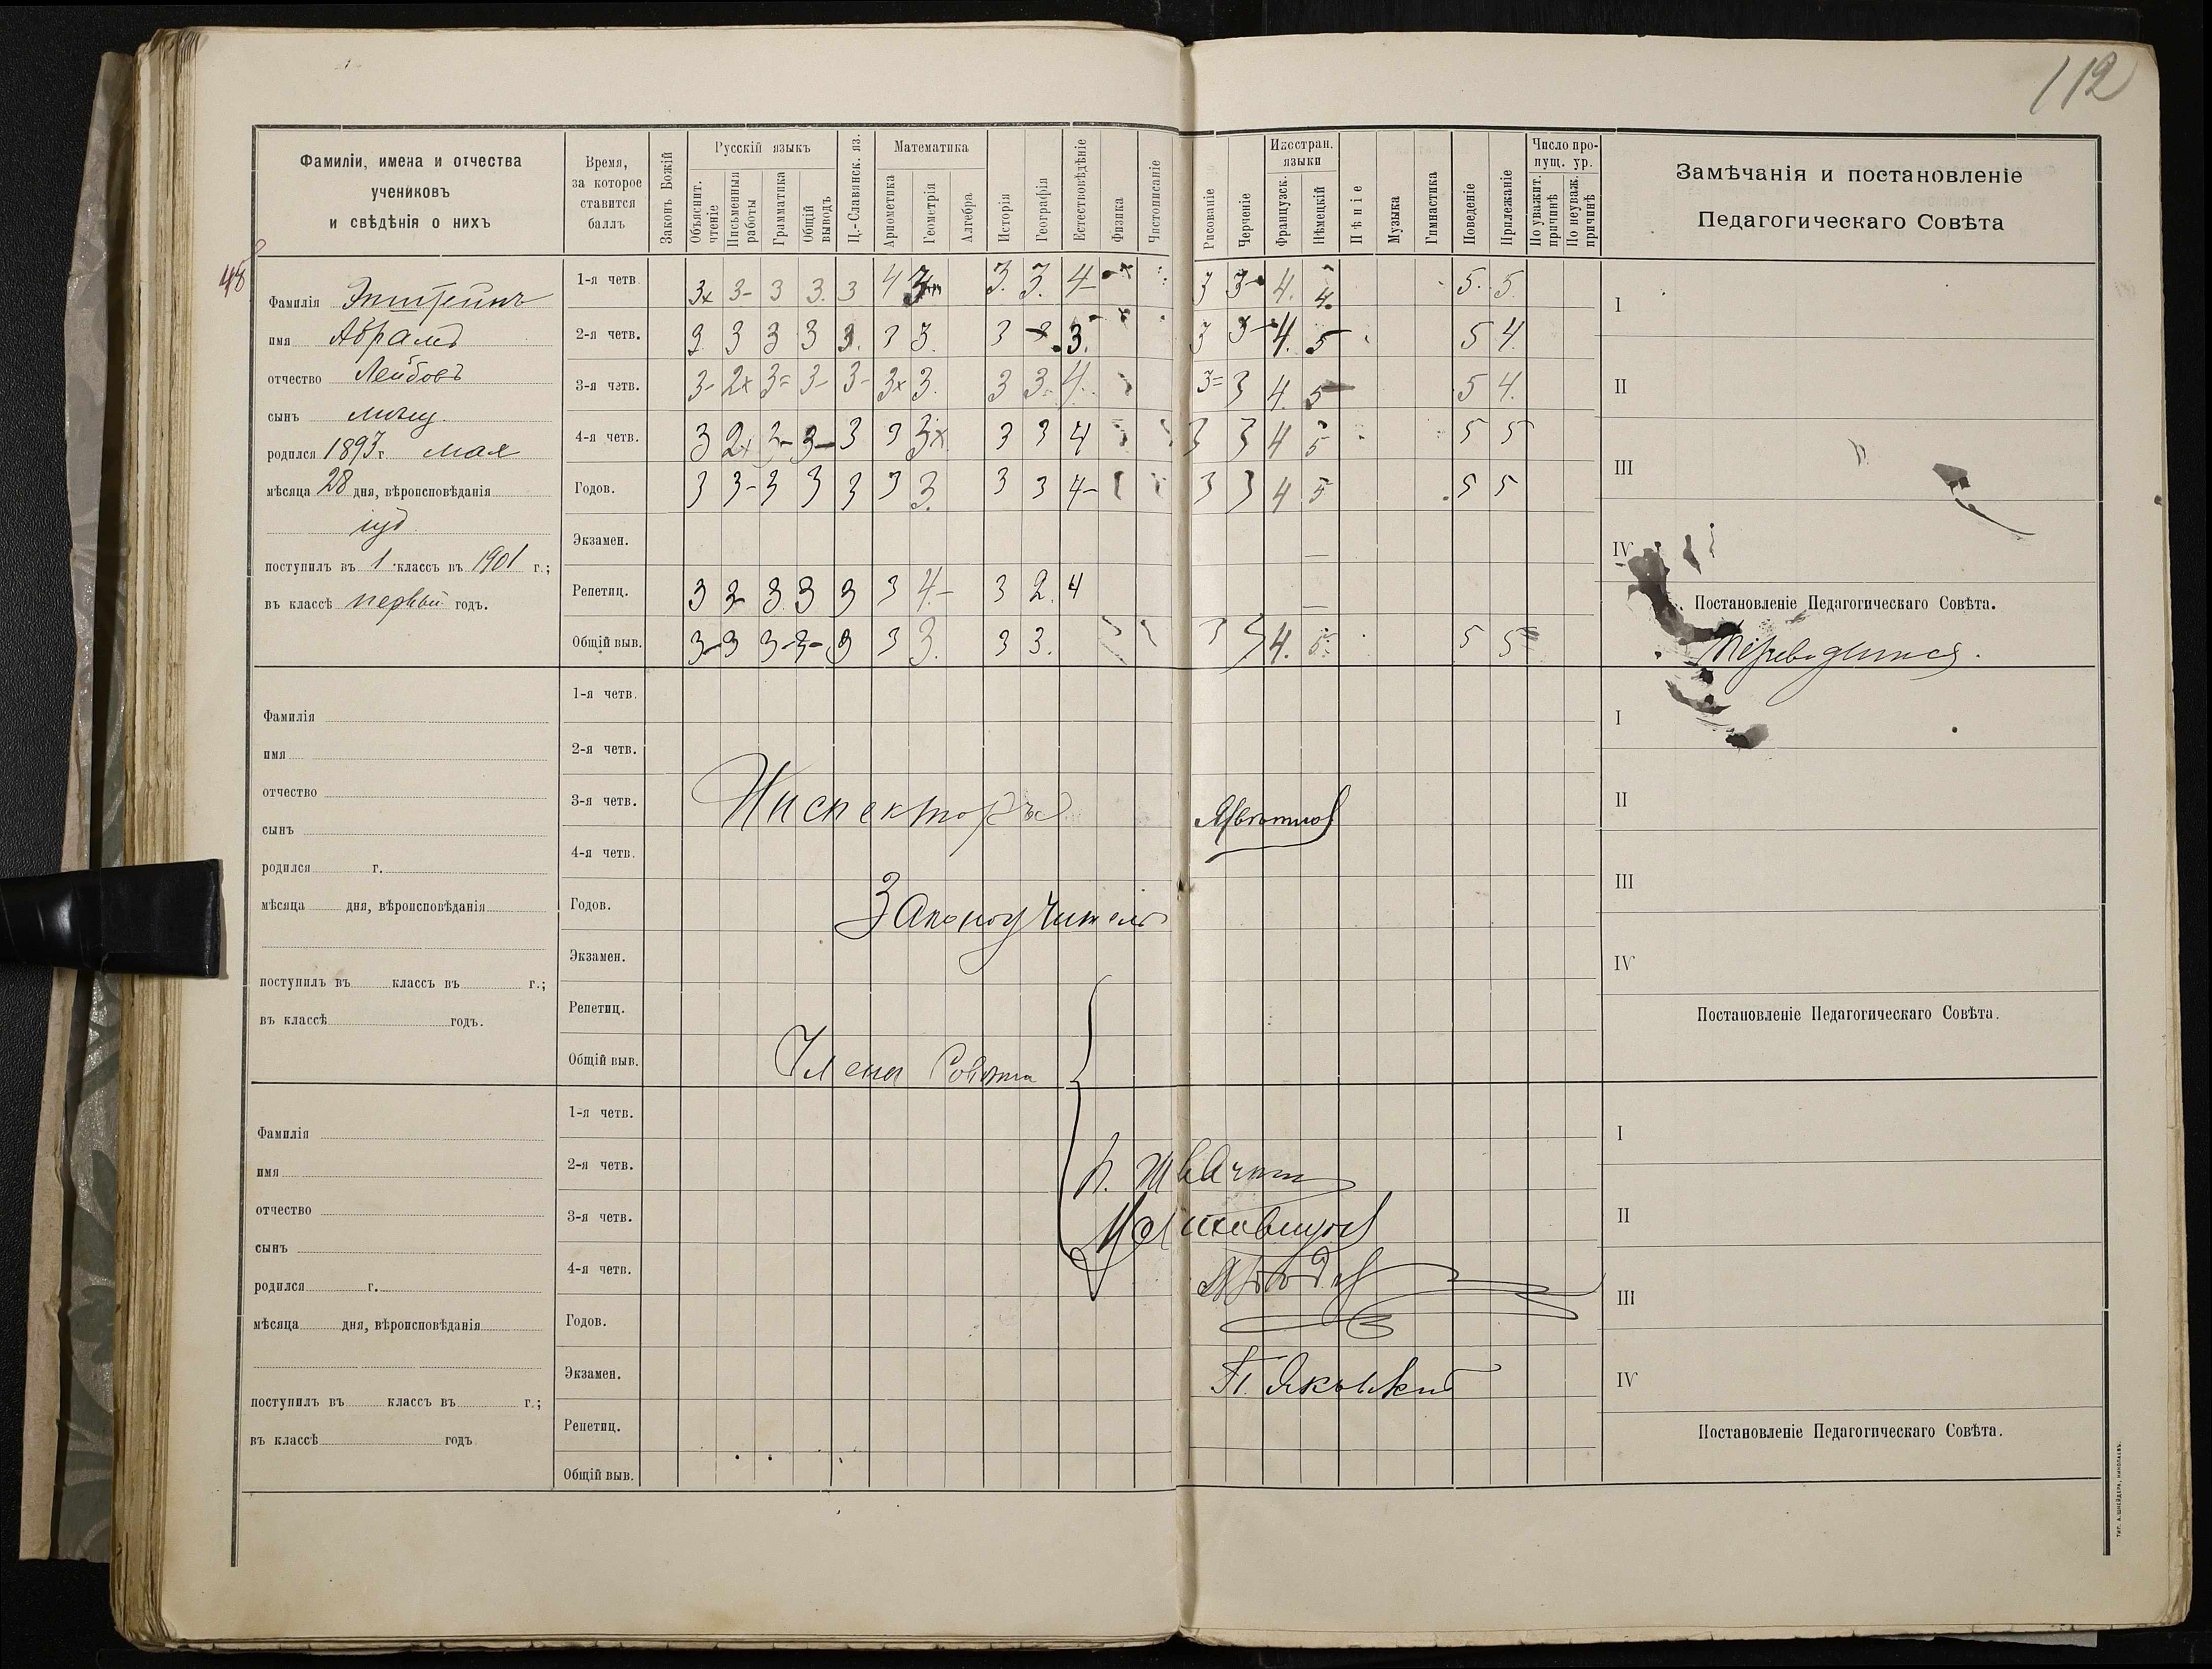 112
Фамиліи, имена и отчества
учениковъ
и свѣдѣнія о нихъ
Время,
за которое
ставится
баллъ
Законъ Божій
Русскій языкъ
Объяснит. чтеніе
Письменныя работы
Грамматика
Общій выводъ
Ц.-Славянск. яз.
Математика
Ариѳметика
Геометрія
Алгебра
Исторія
Географія
Естествовѣдѣніе
Физика
Чистописаніе
Рисованіе
Черченіе
Иностран. языки
Французск.
Нѣмецкій
Пѣніе
Музыка
Гимнастика
Поведеніе
Прилежаніе
Число пропущ. ур.
По уважит. причинѣ
По неуваж. причинѣ
Замѣчанія и постановленіе
Педагогическаго Совѣта
48
Фамилія Эпштейнъ
имя Абрамъ
отчество Лейбовъ
сынъ мѣщ.
родился 1893 г. мая
мѣсяца 28 дня, вѣроисповѣданія
іуд
поступилъ въ 1 классъ въ 1901 г.;
въ классѣ первый годъ.
1-я четв. 3x 3- 3 3. 3 4 3 3. 3. 4- 3 3- 4. 4. 5. 5.
2-я четв. 2 3 3 3 3. 3 3. 3 3. 3 3- 4. 5 5 4.
3-я четв. 3- 2x 3= 3- 3- 3x 3. 3 3. 4. 3= 3 4. 5 5 4.
4-я четв. 3 2x 3- 3- 3 3 3x 3 3 4 3 3 4 5 5 5
Годов. 3 3- 3 3 3 3 3. 3 3 4- 3 3 4 5 5 5
Экзамен.
Репетиц. 3 3- 3. 3 3 3 4.- 3 2. 4
Общій выв. 3- 3 3- 3- 3 3 3. 3 3. 3 3 4. 5. 5 5
I
II
III
IV
Постановленіе Педагогическаго Совѣта.
Переводится.
Фамилія
имя
отчество
сынъ
родился г.
мѣсяца дня, вѣроисповѣданія
поступилъ въ классъ въ г.;
въ классѣ годъ.
1-я четв.
2-я четв.
3-я четв.
4-я четв.
Годов.
Экзамен.
Репетиц.
Общій выв.
Инспекторъ
Законоучитель
Члены Совѣта
I
II
III
IV
Постановленіе Педагогическаго Совѣта.
Фамилія
имя
отчество
сынъ
родился г.
мѣсяца дня, вѣроисповѣданія
поступилъ въ классъ въ г.;
въ классѣ годъ
1-я четв.
2-я четв.
3-я четв.
4-я четв.
Годов.
Экзамен.
Репетиц.
Общій выв.
I
II
III
IV
Постановленіе Педагогическаго Совѣта.
ТИП. А. ШНЕЙДЕРА, НИКОЛАЕВЪ.